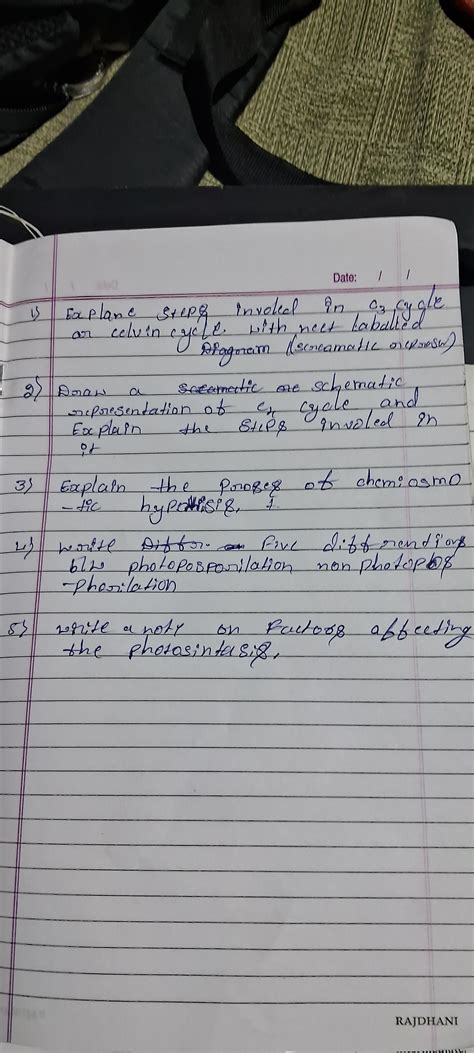 Date: / /
1) Explane steps involed in c3 cycle
or celvin cycle. with neet labulled
Diagram (screamatic represn)
2) Draw a screamatic re schematic
representation of c4 cycle and
Explain the steps involed in
it
3) Explain the proses of chemiosmo
-tic hypothisis.
4) write Differ five differentions
b/w photoposporilation non photophos
-phorilation
5) write a note on Factors affecting
the photosintasis.
RAJDHANI